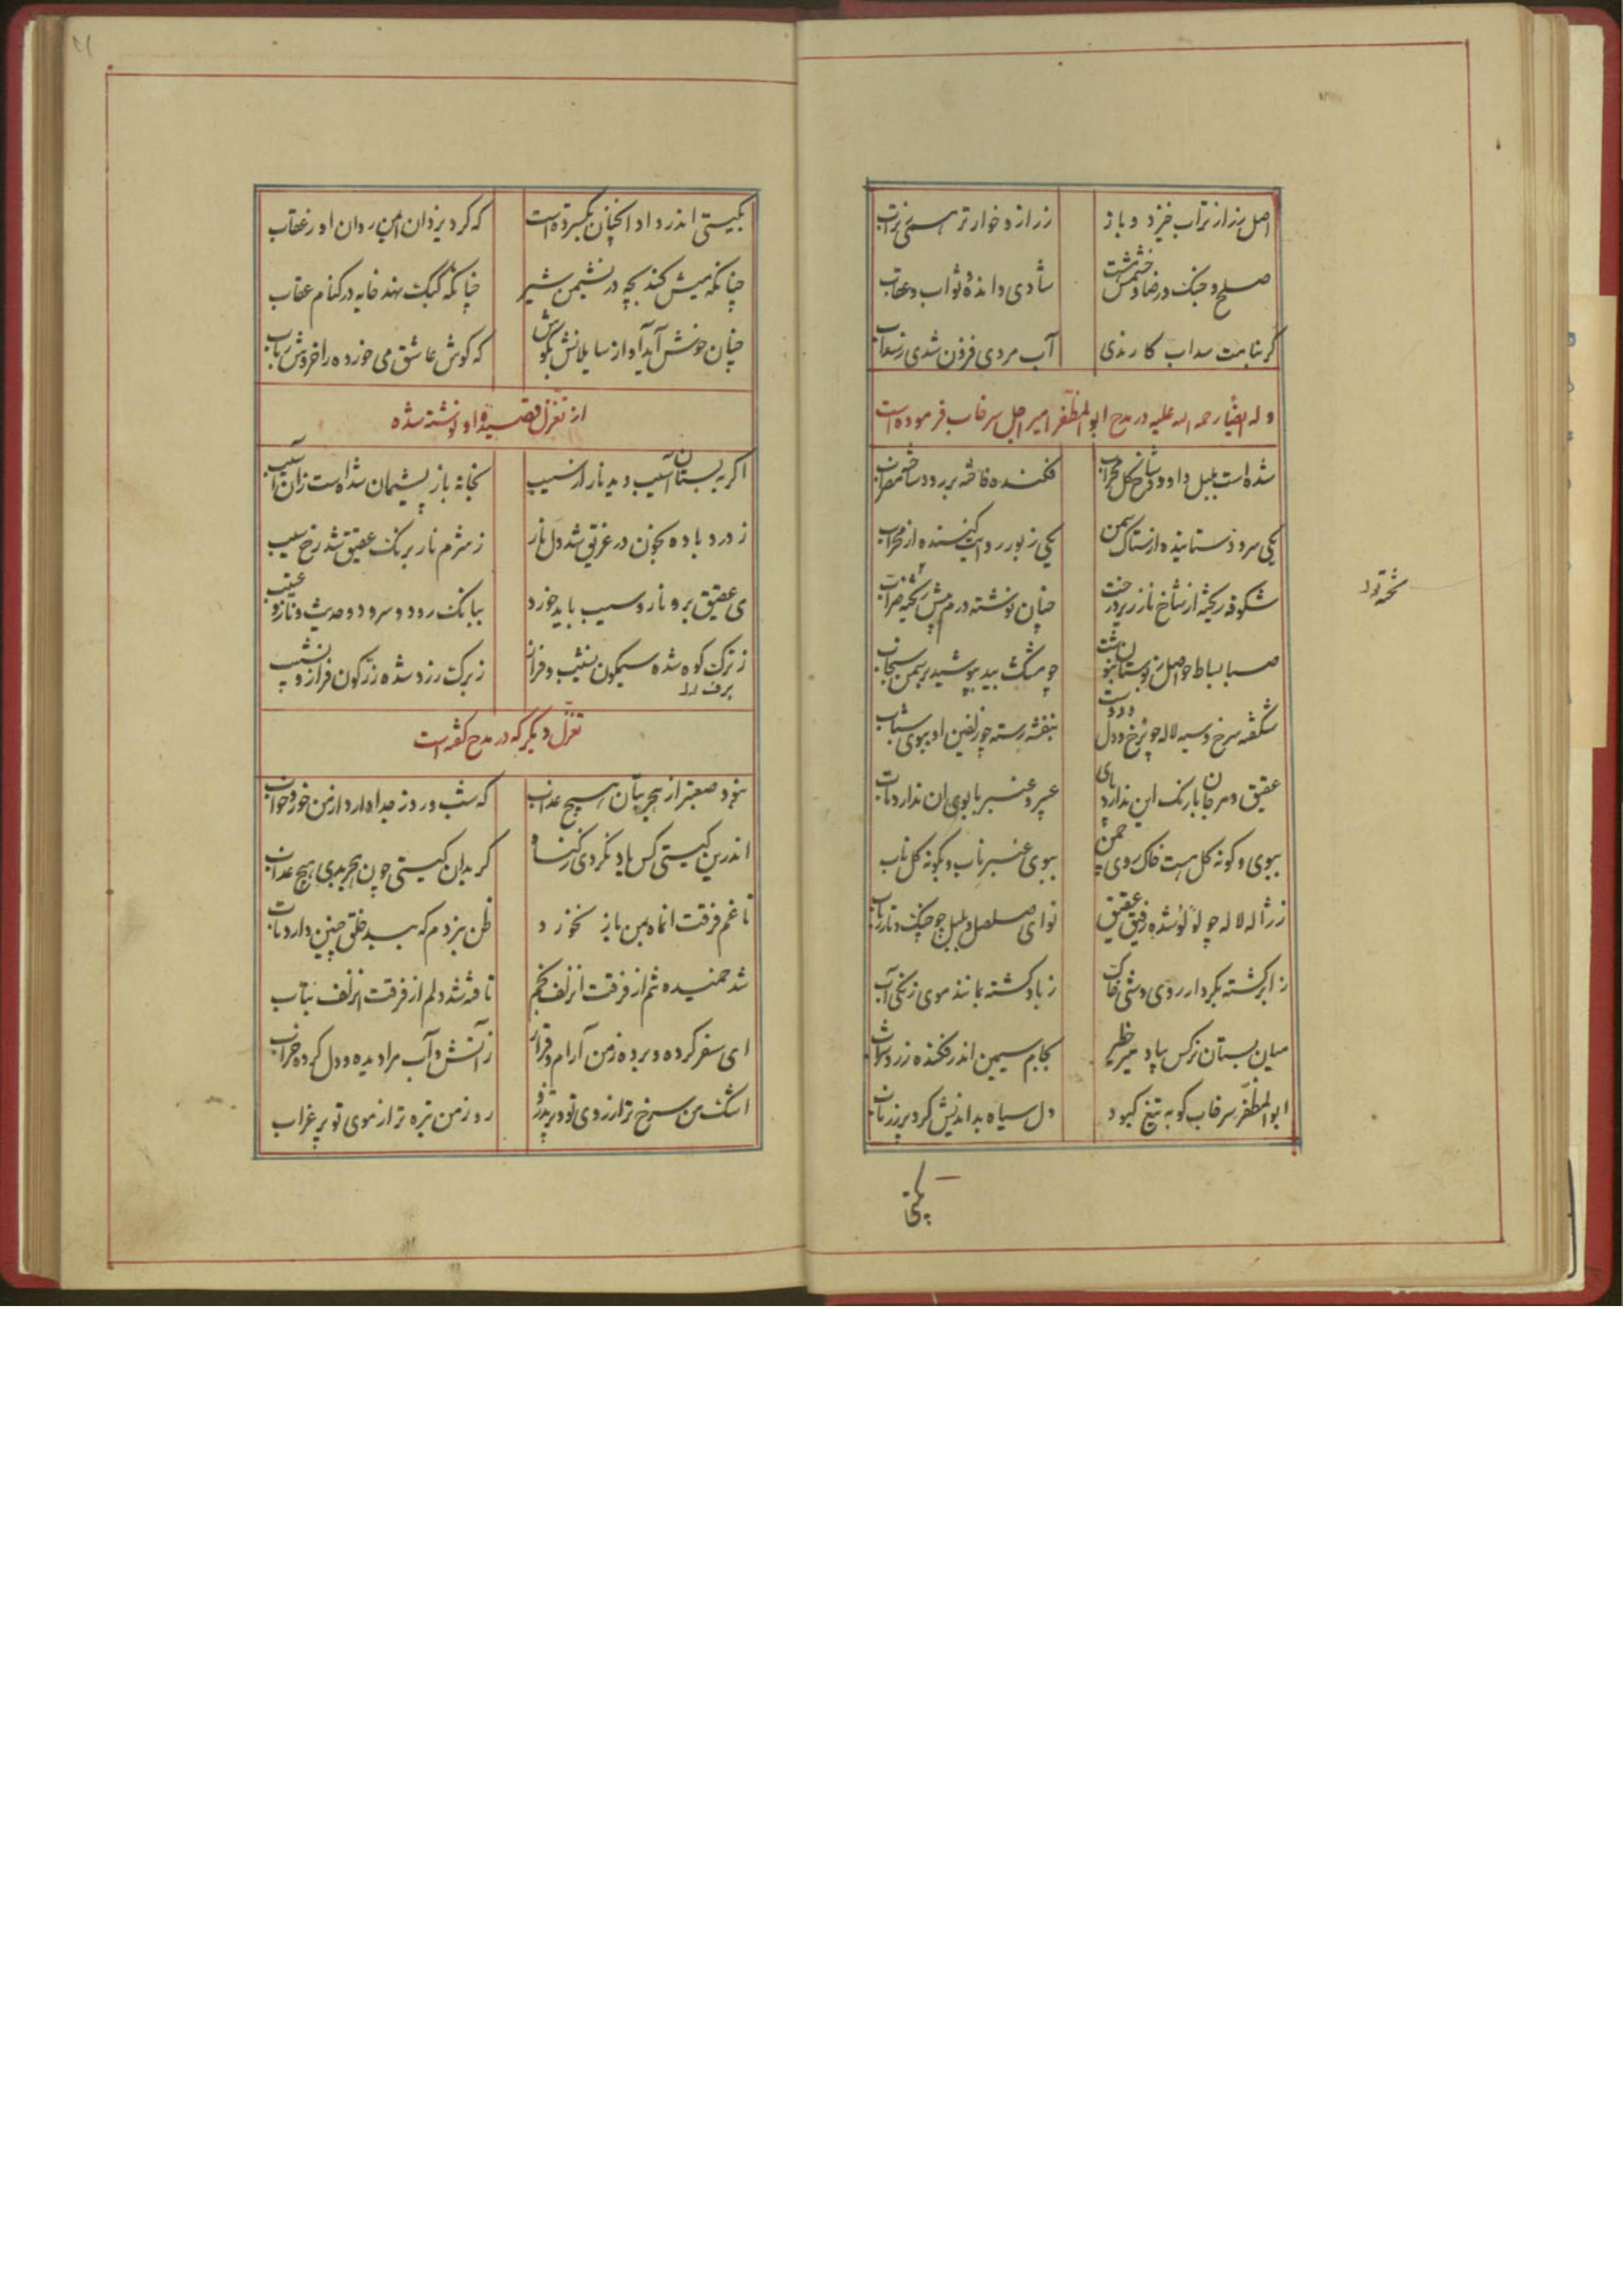 اصل زر از تراب خیزد و باز زر از و خوار تر هست ز تراب
صلح و جنک و رضا و خشمش هست شادی و انده و ثواب و عقاب
کر بنامت سداب کارندی آب مردی فزون شدی ز سداب
و له ایضا رحمه الله علیه در مدح ابوالمظفر امیر اجل سرخاب فرموده است
شده است بلبل داود و شاخ کل محراب فکنده فاخته بر رود ساخته مضراب
یکی سرود ستاینده از ستاک سمن یکی زبور روایت کننده از محراب
شکوفه ریخته از شاخ نار زیر درخت چنان نوشته درم پیش ریخته ضراب
صبا بساط حواصل ز بوستان بنوشت چو مشک بید بپوشید بر سمن سنجاب
شکفته سرخ و سیه لاله چون رخ و دل دوست بنفشه رسته چو زلفین او ببوی و بتاب
عقیق و مرجان با رنک این ندارد پای عبیر و عنبر با بوی ان ندارد تاب
ببوی و کونه کل هست خاک روی چمن ببوی عنبر ناب و بکونه کل ناب
ز ژاله لاله چو لولو شده رفیق عقیق نوای صلصل و بلبل چو چنک و نار رباب
ز ابر کشته بکردار روی وشی خاک ز باد کشته بمانند موی زنکی آب
میان بستان نرکس بیاد میر خطیر بجام سیمین اندر فکنده زرد شراب
ابوالمظفر سرخاب کو به تیغ کبود دل سیاه بداندیش کرد پر زرناب
بکیتی
نسخه
بکیتی اندر داد انچنان بکسترده است که کرد یزدان ایمن روان او ز عقاب
چنانکه میش کند بچه در نشیمن شیر چنانکه کبک نهد خایه در کنام عقاب
چنان خوش آید آواز سایلانش بکوش که کوش عاشق می خورده را خروش رباب
از تغزل قصیده او نوشته شده
اکر به بستان آسیب دید نار از سیب بخانه باز پشیمان شده است زان آسیب
ز درد باده بخون در غریق شد دل نار ز شرم نار برنک عقیق شد رخ سیب
می عقیق بر و نار و سیب باید خورد ببانک رود و سرود و حدیث و ناز و عتیب
ز ترک کوه شده سیمکون نشیب و فراز ز برک رزد شده زرکون فراز و نشیب
برف
تغزل دیکر که در مدح کفته است
نبود صعبتر از هجر بتان هیچ عذاب که شب و روز جدا دارد از من خور و خواب
اندرین کیتی کس یاد نکردی ز کناه کر بدان کیتی چون هجر بدی هیچ عذاب
تا غم فرقت انماه بمن باز نخورد ظن نبردم که رسد خلق چنین دارد تاب
شد خمیده تنم از فرقت انزلف بخم تافته شد دلم از فرقت انزلف بتاب
ای سفر کرده و برده ز من آرام و قرار ز آتش و آب مرا دیده و دل کرده خراب
اشک من سرخ تر از روی تو و پر تذرو روز من تیره تر از موی تو پر غراب